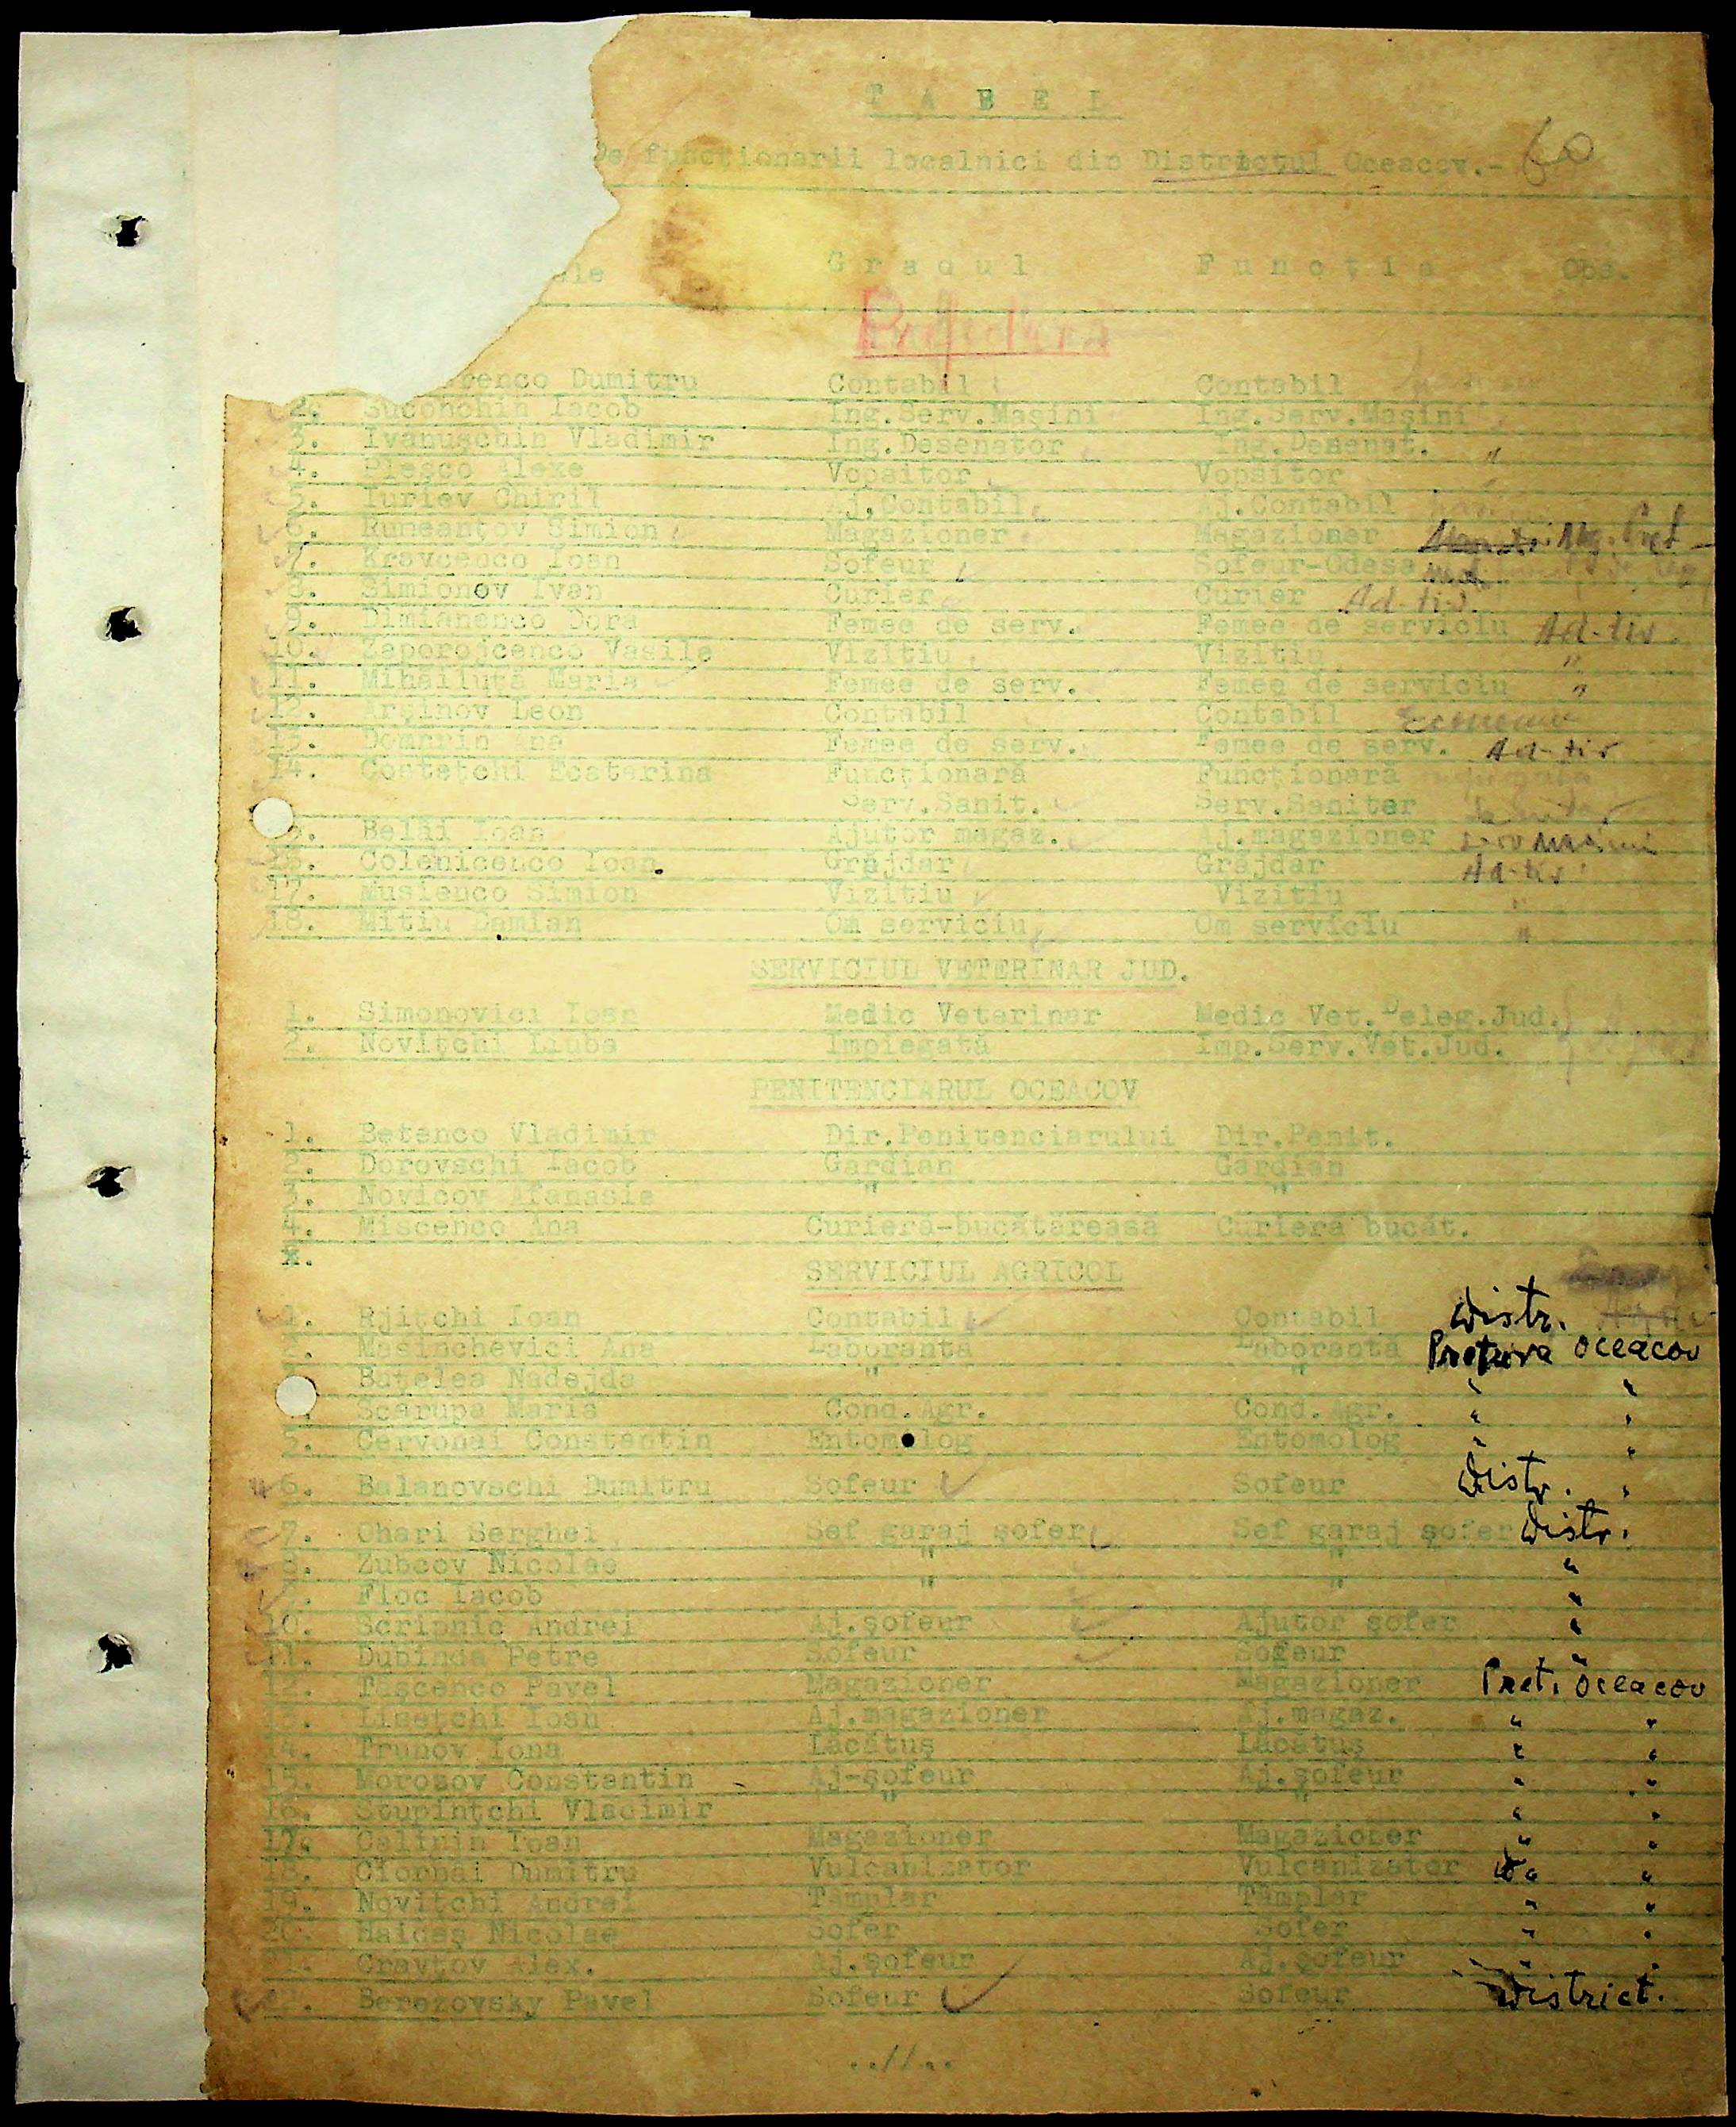 T A B E L
De funcționarii localnici din Districtul Oceacov.- 60
ele G r a d u l F u n c ț i a Obs.
Prefectură
renco Dumitru Contabil Contabil
2. Suconchin Iacob Ing.Serv.Mașini Ing.Serv.Mașini
3. Ivanușchin Vladimir Ing.Desenator Ing.Desenat. "
4. Pleșco Alexe Vopsitor Vopsitor
5. Iuriev Chiril Aj.Contabil Aj.Contabil
6. Rumeanțov Simion Magazioner Magazioner
7. Kravcenco Ioan Sofeur Sofeur-Odesa
8. Simionov Ivan Curier Curier Ad-tiv.
9. Dimianenco Dora Femee de serv. Femee de serviciu Ad-tiv.
10. Zaporojcenco Vasile Vizitiu Vizitiu "
11. Mihăiluță Maria Femee de serv. Femee de serviciu "
12. Arșinov Leon Contabil Contabil
13. Domnrin Ana Femee de serv. Femee de serv. Ad-tiv
14. Costețchi Ecaterina Funcționară Funcționară
Serv.Sanit. Serv.Sanitar Sanitar
5. Belăi Ioan Ajutor magaz. Aj.magazioner Serv Mașini
16. Colenicenco Ioan. Grăjdar Grăjdar Ad-tiv
17. Musienco Simion Vizitiu Vizitiu "
18. Mitiu Damian Om serviciu Om serviciu "
SERVICIUL VETERINAR JUD.
1. Simonovici Ioan Medic Veterinar Medic Vet.Deleg.Jud.
2. Novițchi Liuba Impiegată Imp.Serv.Vet.Jud.
PENITENCIARUL OCEACOV
1. Betenco Vladimir Dir.Penitenciarului Dir.Penit.
2. Dorovschi Iacob Gardian Gardian
3. Novicov Afanasie " "
4. Miscenco Ana Curieră-bucătăreasă Curieră bucăt.
SERVICIUL AGRICOL
1. Rjițchi Ioan Contabil Contabil Distr.
2. Masinchevici Ana Laborantă Laborantă Pretura Oceacov
Buțelea Nadejda " " " "
Scarupa Maria Cond.Agr. Cond.Agr. " "
5. Cervonai Constantin Entomolog Entomolog " "
6. Balanovschi Dumitru Sofeur Sofeur Distr. "
7. Ohari Serghei Sef garaj șofer Sef garaj șofer Distr.
8. Zubcov Nicolae " " "
9. Floc Iacob " " "
10. Scripnic Andrei Aj.șofeur Ajutor șofer "
11. Dubinda Petre Sofeur Sofeur "
12. Tișcenco Pavel Magazioner Magazioner Pret. Oceacov
13. Lisețchi Iosu Aj.magazioner Aj.magaz. " "
14. Trunov Iona Lăcătuș Lăcătuș " "
15. Morozov Constantin Aj-șofeur Aj.șofeur " "
16. Stupințchi Vladimir " " " "
17. Calinin Ioan Magazioner Magazioner " "
18. Ciornai Dumitru Vulcanizator Vulcanizator " "
19. Novițchi Andrei Tâmplar Tâmplar " "
20. Haidaș Nicolae Sofer Sofer " "
21. Cravțov Alex. Aj.șofeur Aj.șofeur " "
22. Berezovsky Pavel Sofeur Sofeur District.
..//..